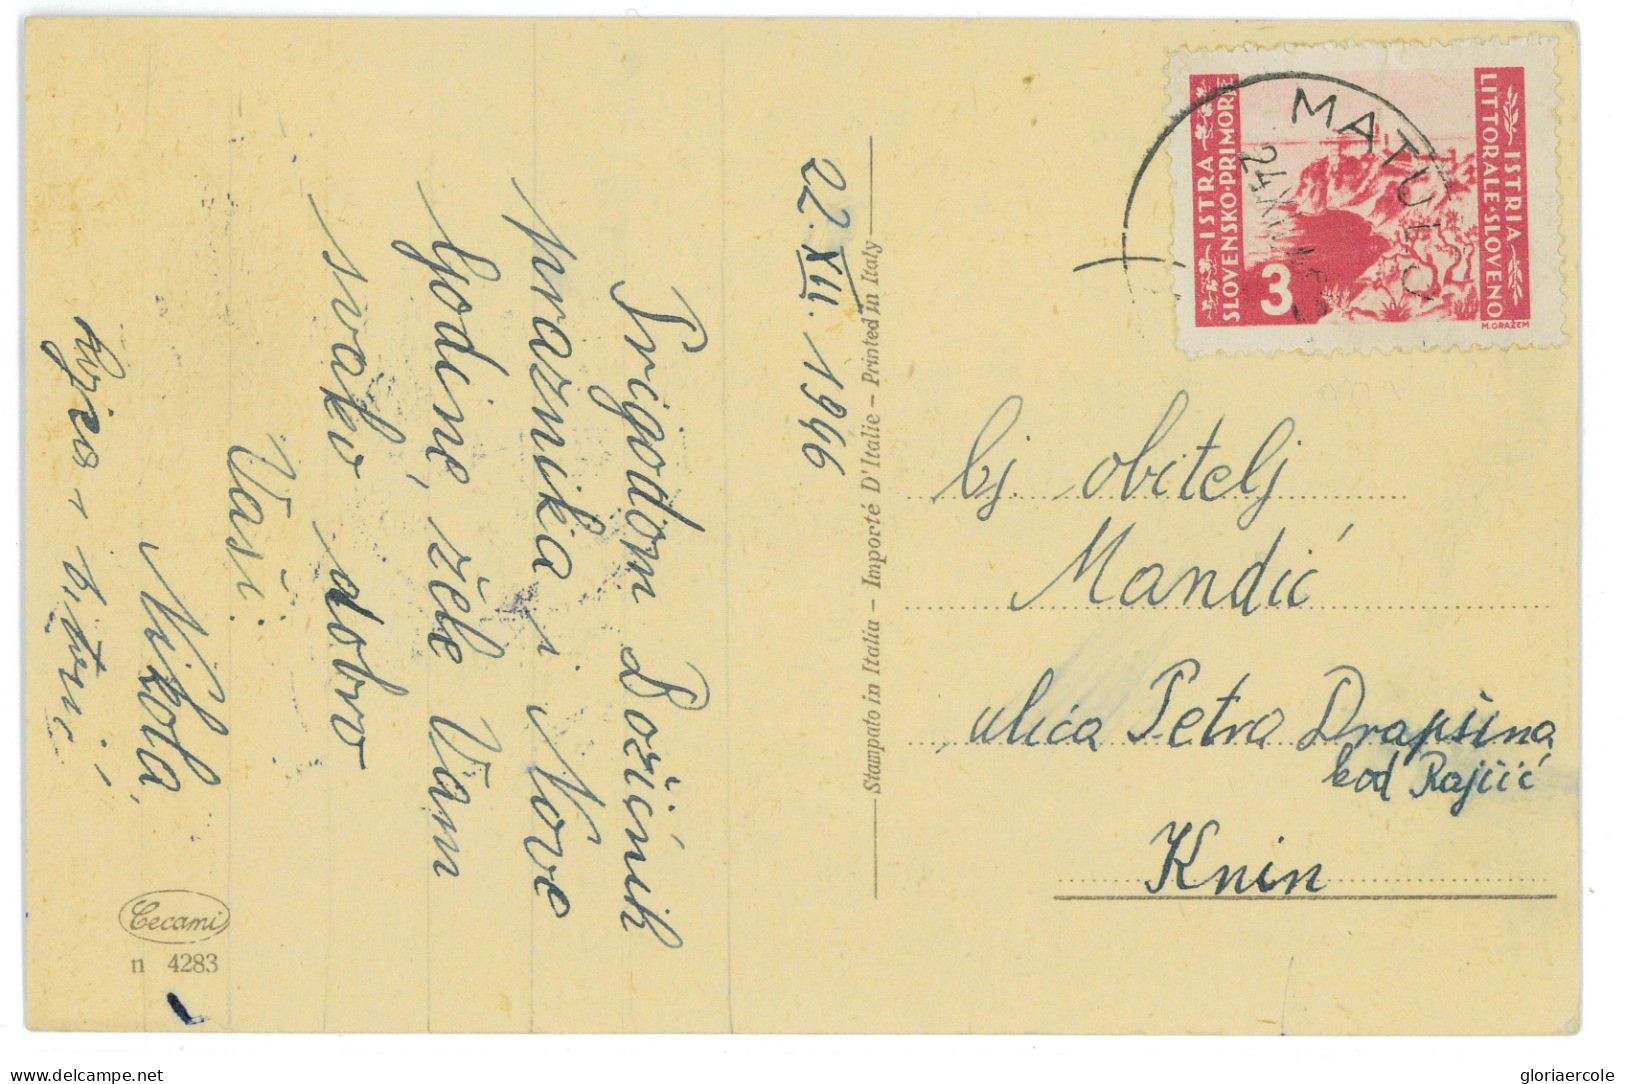 22.XII.1946
Prigodom Božićnih
praznika i Nove
Godine, žele Vam
svako dobro
Vaši:
Nikola,
Cecami
n 4283
Stampato in Italia – Importé D'Italie – Printed in Italy
ISTRA
SLOVENSKO·PRIMORJE
ISTRIA
LITTORALE·SLOVENO
3
M.GRAŽEM
MATULJ
24 XII
bj. obitelj
Mandić
ulica Petra Drapšina
kod Rajčić
Knin
delcampe.net
gloriaercole